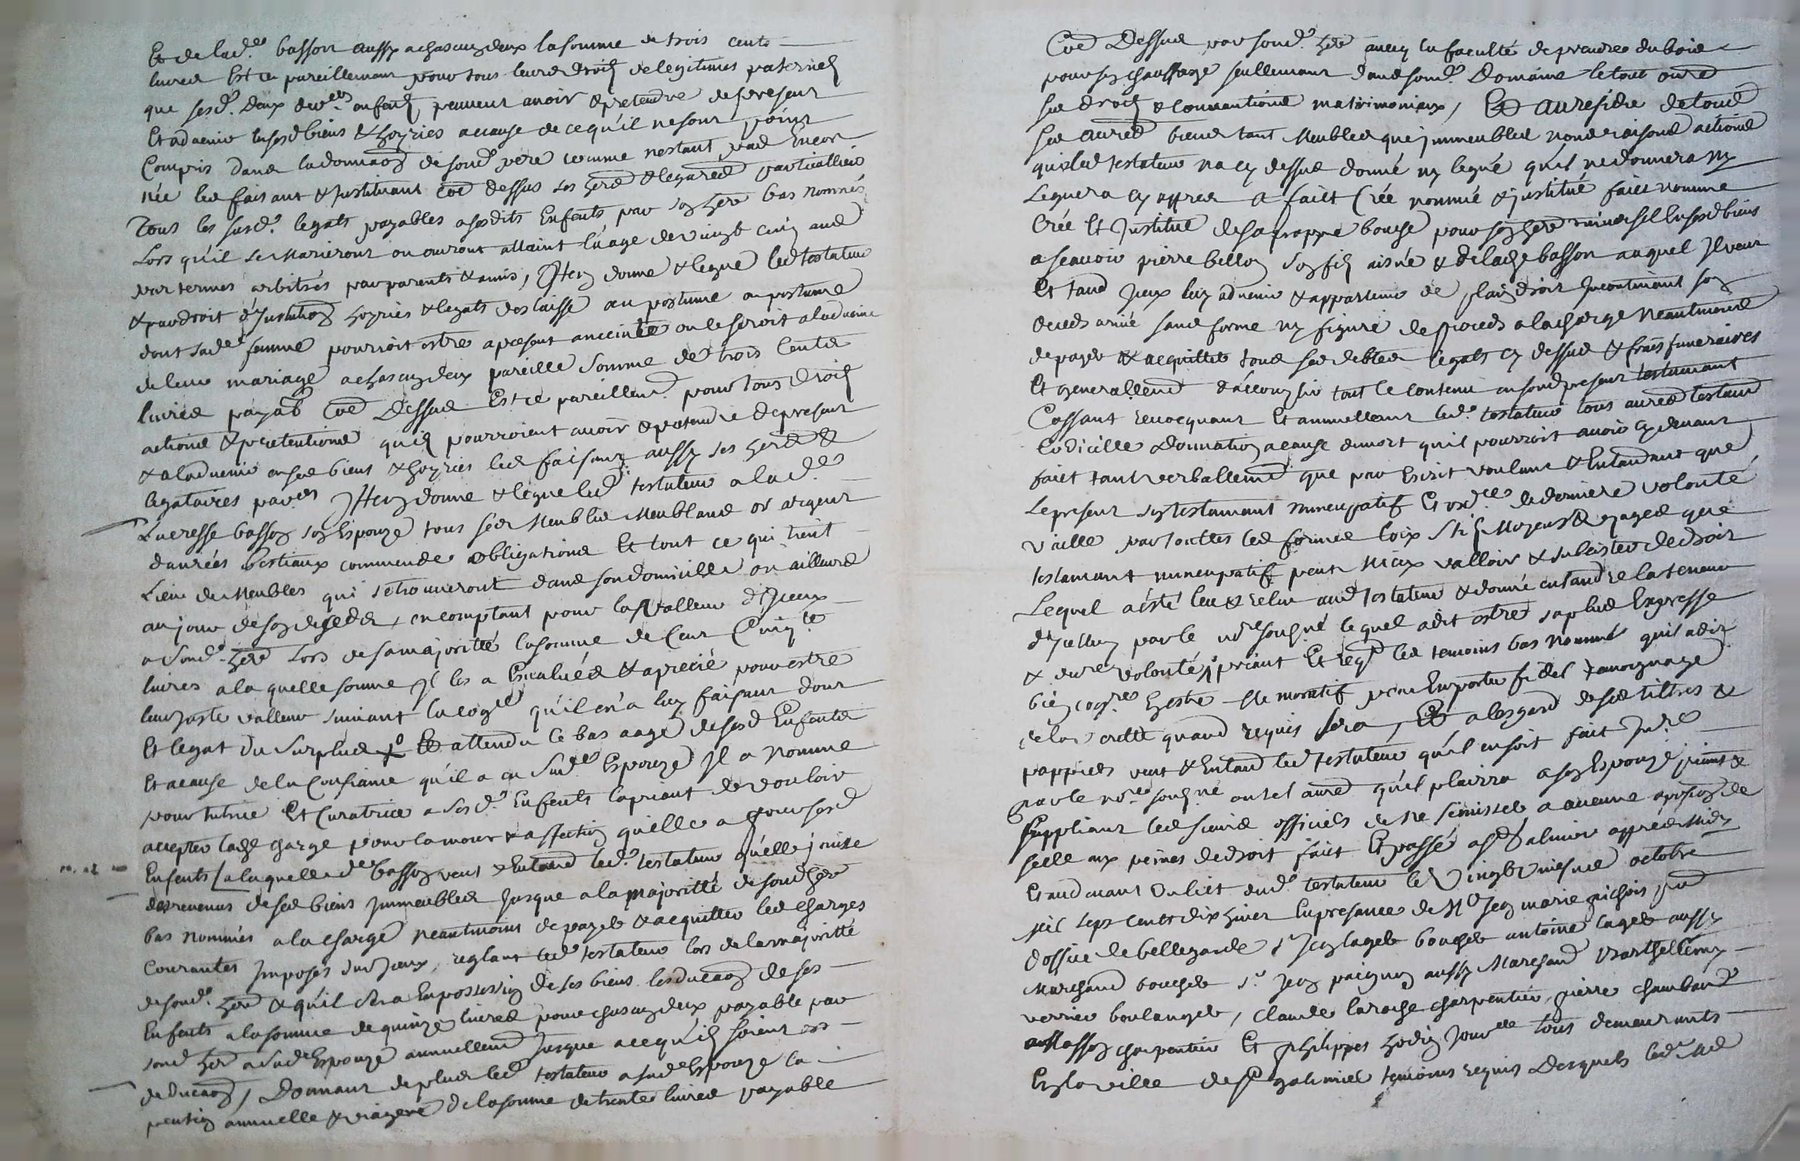 Et de lad.e basson aussy a chascung deux la somme de trois cents
livres Et ce pareillemant pour tous leurs droitz de legitimes paternelz
que sesd. deux enfentz peuvent avoir & pretendre de present
Et advenir en sesd biens & hoyries a cause de ce qu'il ne sont point
Compris dans la donnaon de sond. pere comme nestant pas Encor
née les faisant & Instituant Coe dessus ses heres & legatres particulliers
Tous les susd. legats payables asesdits Enfents par son here bas nommés
Lors qu'il se Marieront ou auront attaint l'âage de vingt cinq ans
par termes arbitrés par parents & amis, Item donne & legue led testateur
& par droit d'Institution hoyries & legats delaisse au postume ou postume
dont sade femme pourroit estre apresent anceinte ou le seroit a ladvenir
de leur mariage a chascung deux pareille somme de trois Cents
livres payab Coe Dessus Et ce pareillemt pour tous droitz
actions & pretentions quilz pourroient avoir & pretendre de present
& a ladvenir en ses biens & hoyries les faisant aussy ses heres &
legataires par.ers Item donne & legue led testateur a lad.e
Lucresse basson son Espouze tous ses Meubles Meublans or argent
danrées bestiaux commande obligations Et tout ce qui tient
Lieu de Meubles qui se trouveront dans son domicille ou ailleurs
au jour de son deceds, en comptant pour la Valleur d'Iceux
a sond. here lors de sa majoritté la somme de Cent Cinq.te
livres a la quelle somme Il les a Esvalués & aprecié pour estre
leur juste valleur suivant la cog.ce qu'il en a luy faisant don
Et legat du surplus Et attendu le bas aage de sesd Enfents
Et a cause de la Confiance qu'il a en sad.e Espouze Il a nommé
pour tutrice Et Curatrice a sesd. Enfents la priant de vouloir
accepter lade charge pour lamour & affection quelle a pour sesd
Enfents a laquelle de basson veut & Entand led. testateur qu'elle jouisse
des revenus de ses biens Immeubles Jusque a la majoritté de sond here
bas nommés a la charge neantmoins de payer & acquitter les charges
Courantes Imposés sur Iceux, reglant led testateur lors de la majoritté
de sond. here & qu'il sera En possession de ses biens lesducaon de ses
Enfents a la somme de quinze livres pour chascung deux payable par
sond here a sade Espouze annuellemt Jusque a ce qu'ilz soient
deducaon, Donnant de plus led testateur a sade Espouze la
pention annuelle & viagere de la somme de trente livres payable
Coe Dessus par sond. here avecq la faculté de prendre du bois
pour son chauffage seullemant dans son. Domaine le tout outre
ses droitz & convantions matrimoniaux, Et Au residu de tous
ses autres biens tant Meubles que immeubles noms raisons actions
quisled testateur na cy dessus donné ny legué qu'il ne donnera ny
Leguera cy appres a fait Créé nommé & institué fait nomme
Crée Et Institue de sa propre bouche pour son here universel En sesd biens
a scavoir pierre belloy son filz aisné & de lade basson auquel Il veut
Et tand Iceux luy advenir & appartenir de plain droit Incontinant son
deceds arrivé sans forme ny figure de proceds a la charge neantmoins
de payer & acquitter tous ses debtes legats cy dessus & frais funeraires
Et generallemt d'accomplir tout le contenu en sond present testamant
Cassant revocquant Et annullant led. testateur tous autres testamt
Codicille & donnation a cause de mort qu'il pourroit avoir cy devant
fait tant verballemt que par Escrit voulant & Entandant que
Le present son testamant nuncupatif Et ord.ce de derniere volonté
Vaille par touttes les formes loix stil Moyens & usages que
testamant nuncupatif peut Mieux valloir & subsister de droit
Lequel a esté leu & releu aud testateur & donné entandre la teneur
d'Icelluy par le no.re sousigné lequel a dit estre sa plus Expresse
& dere volonté, priant Et req.t les temoins bas nommés quil a dit
bien cog.res Estre Memoratif pour Emporter fidel tamoignage
cela cette quand requis sera, Et alesgard de ses tiltres &
pappiers veut & Entand led testateur qu'il en soit fait In.re
par le no.re sousigné ou tel autre qu'il plairra a son Espouze priant &
suppliant les sieurs officiels de ne simisser a aucune aposition de
scelle aux peines de droit fait Et passé a st galmier appres Midy
Et au devant du lict dud. testateur le Vingt uniesme octobre
Mil sept cents dix huict En presance de Me Jean marie
d'office de bellegarde, s.r Jean lager boucher antoine lager aussy
Marchand boucher s.r Jean paignon aussy Marchand Barthellemy
verrier boulanger, Claude laroche charpentier, pierre chambard
charpentier Et philippes hodin Jour.lle tous demeurants
En la ville de st galmier temoins requis Desquels led. Me